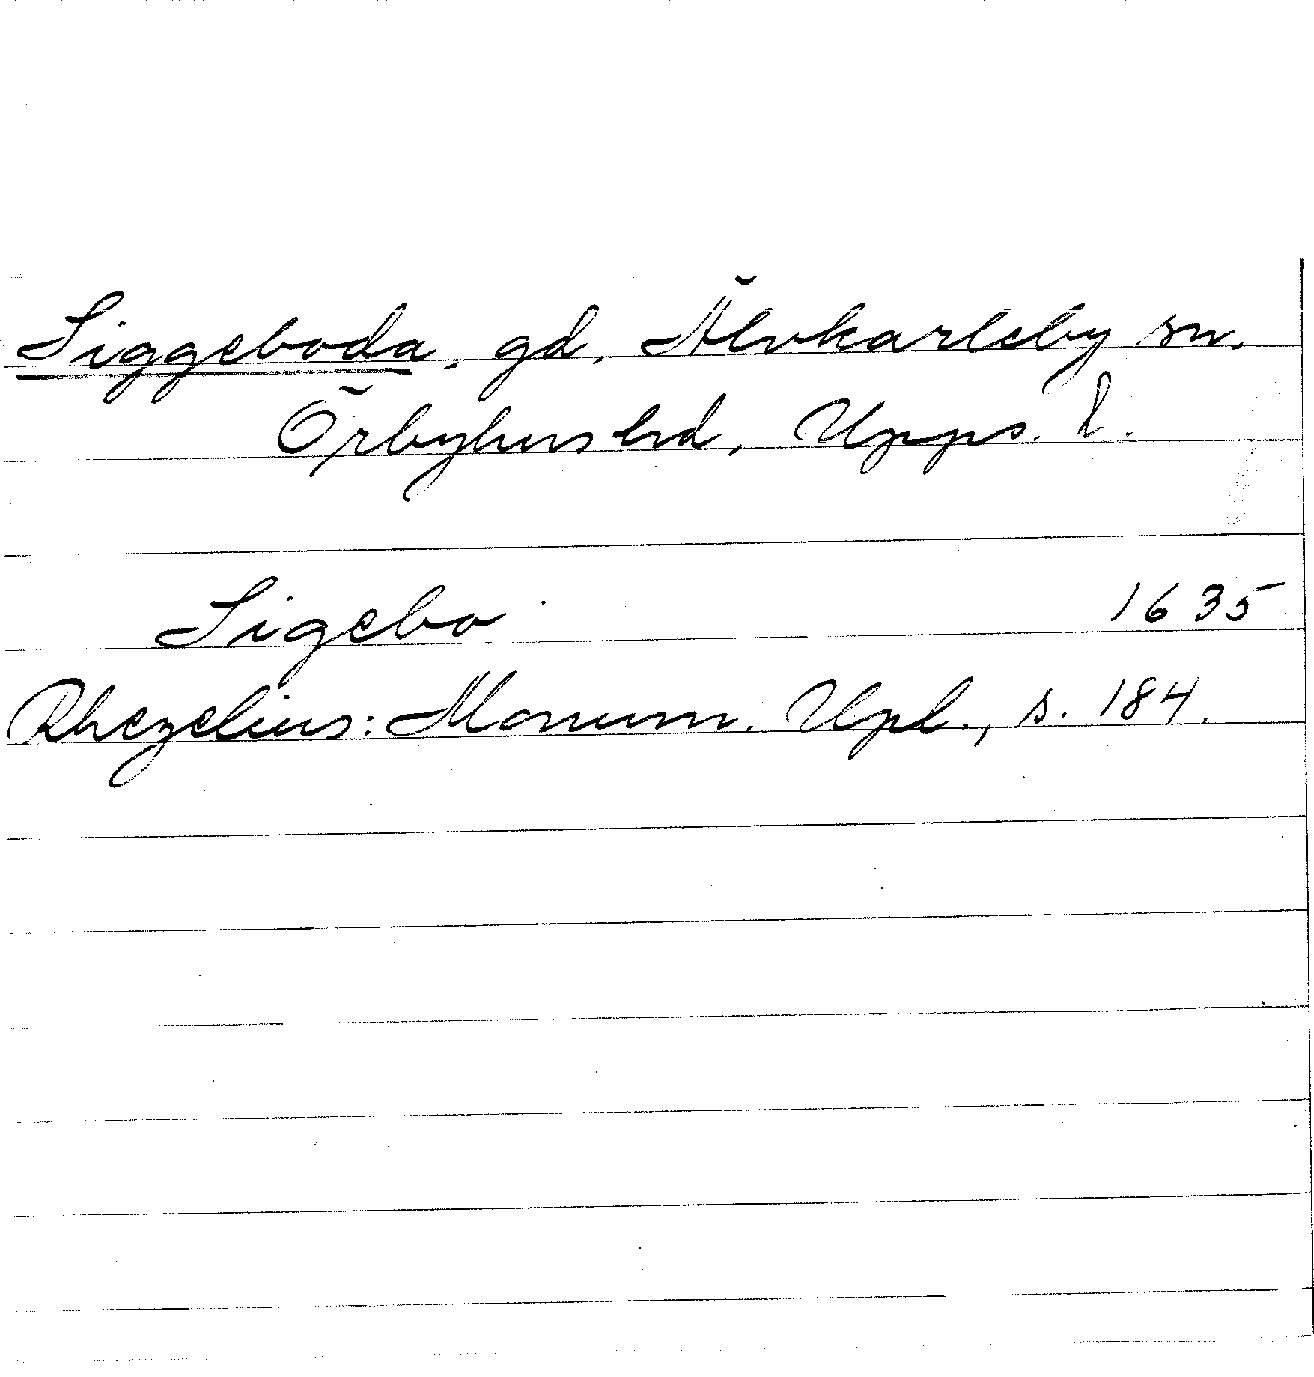 Siggeboda, gd, Älvkarleby sn.
Örbyhus hd, Upps. l.
Sigebo 1635
Rhezelius: Monum. Upl., s. 184.